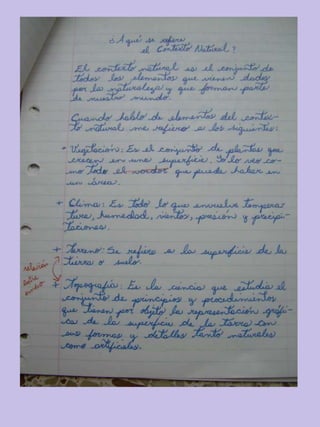 ¿A qué se refiere
el Contexto Natural?
El contexto natural es el conjunto de
todos los elementos que vienen dados
por la naturaleza y que forman parte
de nuestro mundo.
Cuando hablo de elementos del contex-
to natural me refiero a los siguientes:
+ Vegetación: Es el conjunto de plantas que
crecen en una superficie. Yo lo veo co-
mo todo el verdor que pueda haber en
un área.
+ Clima: Es todo lo que envuelve tempera-
tura, humedad, vientos, presión y precipi-
taciones.
+ Terreno: Se refiere a la superficie de la
tierra o suelo.
relación
entre
+ Topografía: Es la ciencia que estudia el
conjunto de principios y procedimientos
que tienen por objeto la representación gráfi-
ca de la superficie de la tierra con
sus formas y detalles tanto naturales
como artificiales.